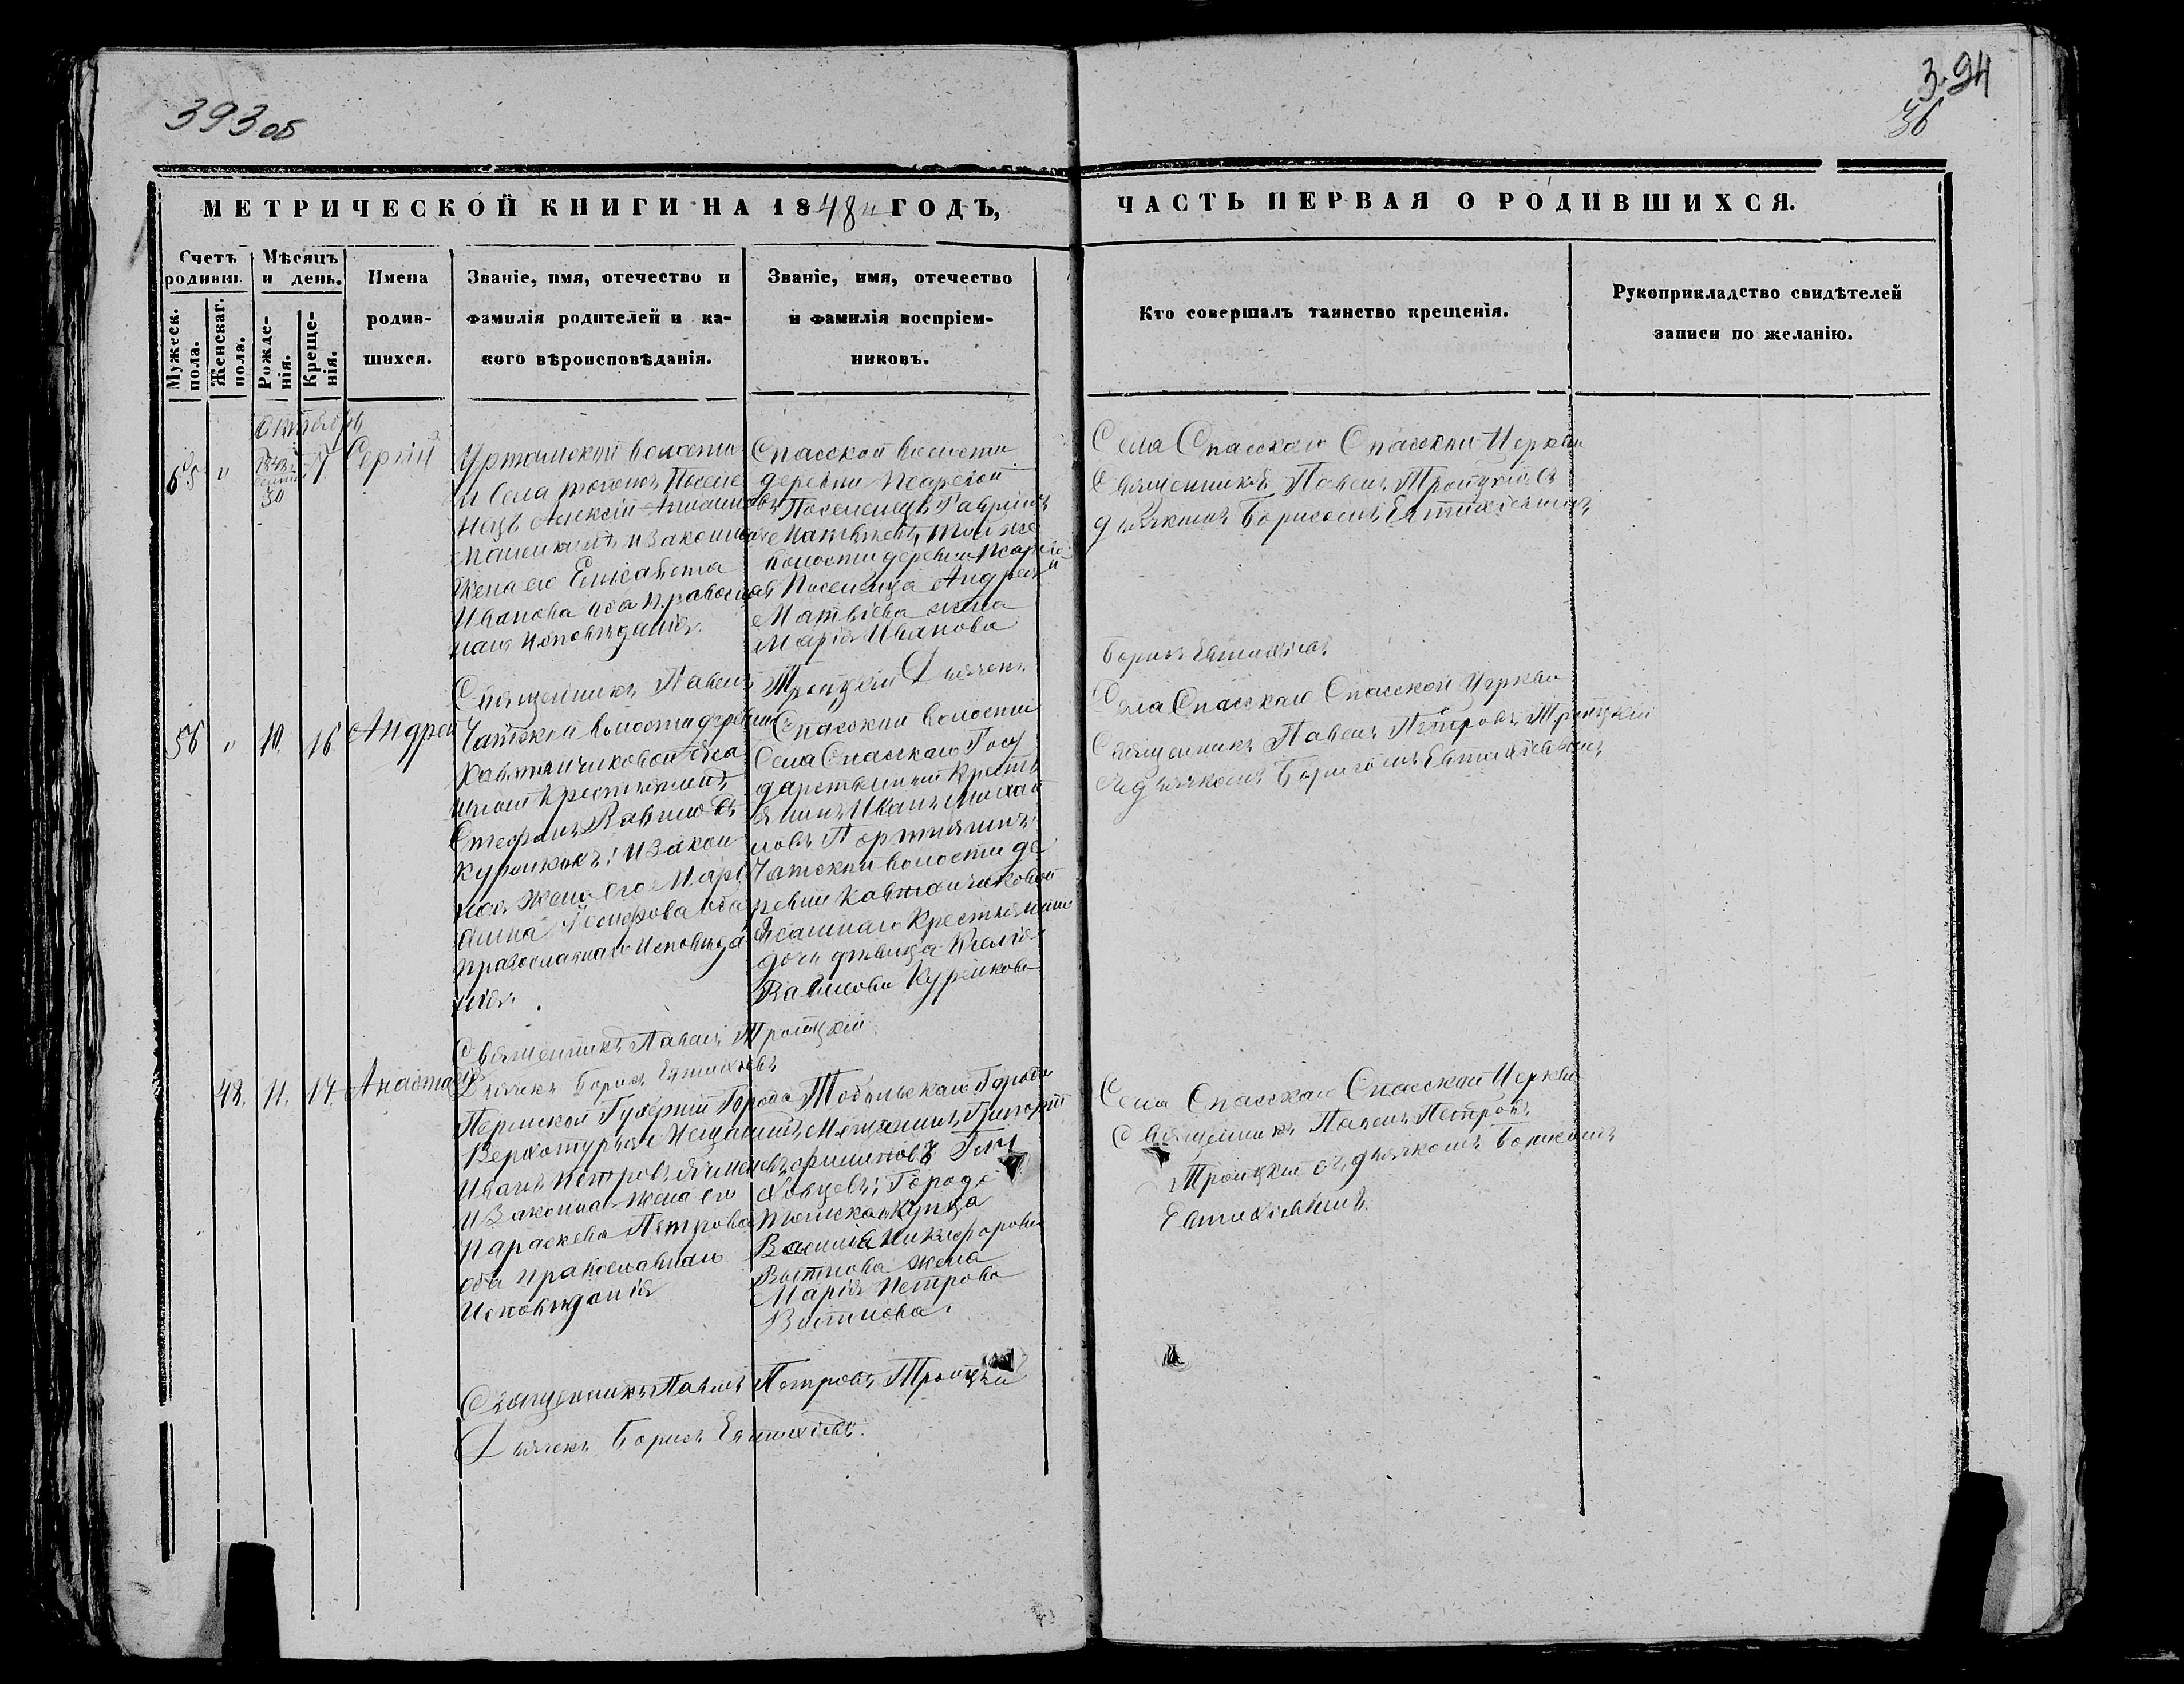 393 об
3.94
36
МЕТРИЧЕСКОЙ КНИГИ НА 1848й ГОДЪ,
ЧАСТЬ ПЕРВАЯ О РОДИВШИХСЯ.
Счетъ родивш.
Мужеск. пола.
Женскаг. пола.
Мѣсяцъ и день.
Рожде-нія.
Креще-нія.
Имена
родив-
шихся.
Званіе, имя, отечество и
фамилія родителей и ка-
кого вѣроисповѣданія.
Званіе, имя, отечество
и фамилія воспріем-
никовъ.
Кто совершалъ таинство крещенія.
Рукоприкладство свидѣтелей
записи по желанію.
Октябрь
55 " 30 7. Сергій
Уртамской волости
и села тогожъ Поселе
нецъ Алексій
и законная
жена его Елисавета
Иванова оба православ
наго исповѣданія.
Спасской волости
деревни
Поселенецъ Гавріилъ
Матвѣевъ, той же
волости деревни
Поселенца Андрея
Матвіева жена
Марія Иванова
Села Спасскаго Спасской Церкви
Священникъ Павелъ Троицкій съ
дьячкомъ Борисомъ Евтихіевымъ
Священникъ Павелъ Троицкій Дьячекъ
Борисъ Евтихіевъ
56 " 10. 16 Андрей
Чатской волости деревни
Кавтанчиковой Яса
шной крестьянинъ
Стефанъ
и закон
ная жена его Марі
анна оба
православнаго исповѣда
нія.
Спасской волости
Села Спасскаго Госу
дарственный Кресть
янинъ Иванъ Михай
ловъ Портнягинъ.
Чатской волости де
ревни Кавтанчиковой
Ясашнаго Крестьянина
дочь дѣвица
Села Спасскаго Спасской Церкви
Священникъ Павелъ Петровъ Троицкій
съ дьячкомъ Борисомъ Евтихіевымъ
Священникъ Павелъ Троицкій
Дьячекъ Борисъ Евтихіевъ
48. 11. 17. Анастасія
Пермской Губерніи Города
Верхотурья Мещанинъ
Иванъ Петровъ
и законная жена его
Параскева Петрова
оба православнаго
Исповѣданія
Тобольскаго Города
Мѣщанинъ Григорій
Филиповъ
Города
Томска Купца
Василія Никифорова
жена
Марія Петрова
Села Спасскаго Спасской Церкви
Священникъ Павелъ Петровъ
Троицкій съ дьячкомъ Борисомъ
Евтихіевымъ.
Священникъ Павелъ Петровъ Троицкій
Дьячекъ Борисъ Евтихіевъ.